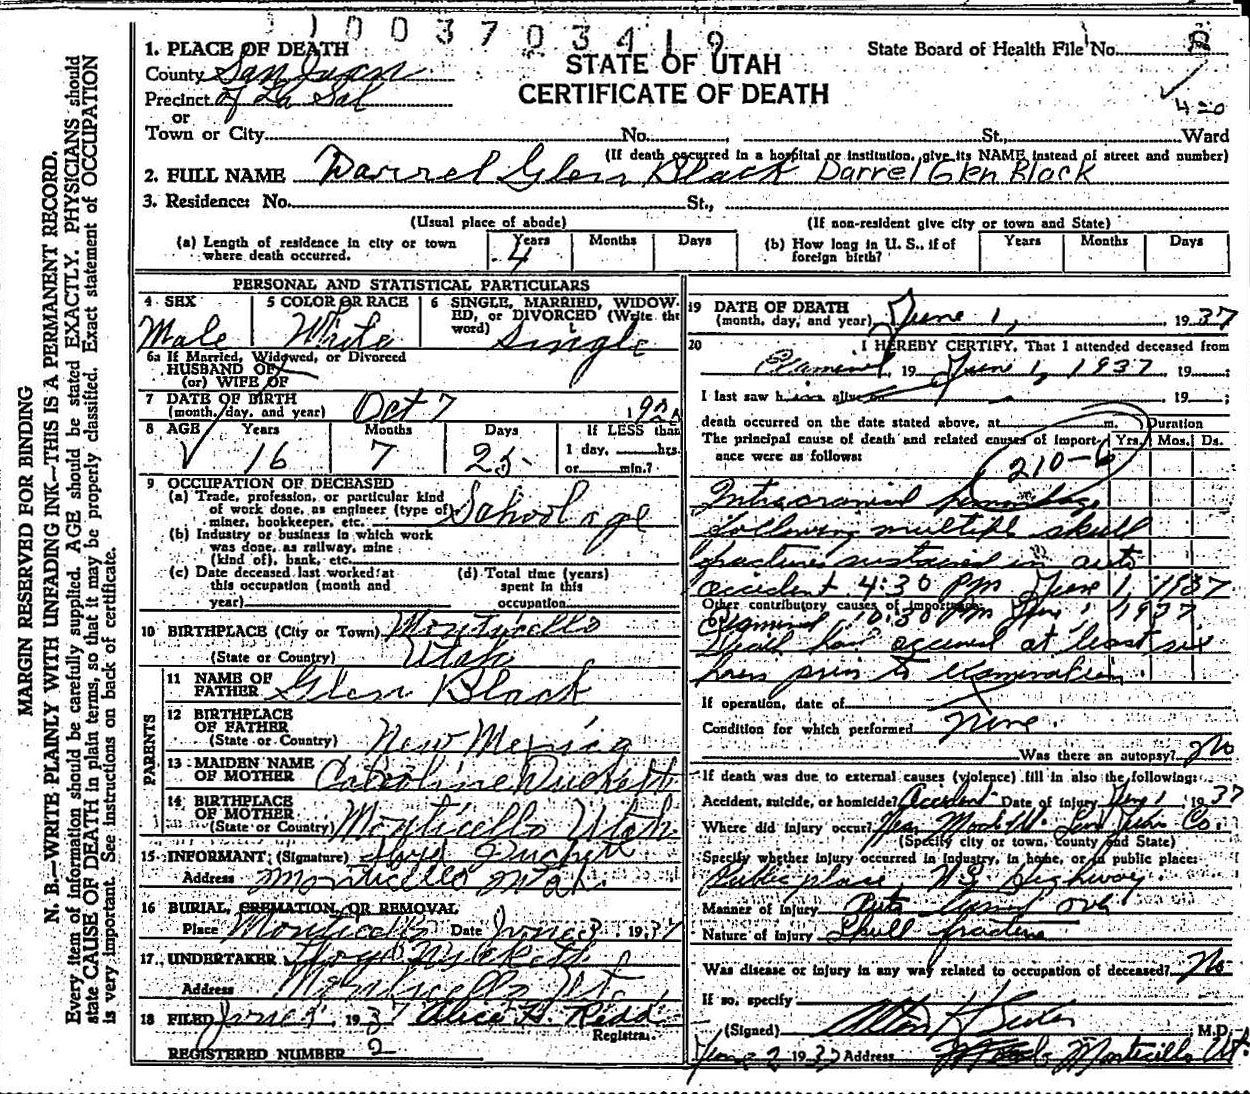 1003703419
1. PLACE OF DEATH
State Board of Health File No.
County San Juan
STATE OF UTAH
Precinct of La Sal
CERTIFICATE OF DEATH
or
420
Town or City No. St., Ward
(If death occurred in a hospital or institution, give its NAME instead of street and number)
2. FULL NAME Darrel Glen Black Darrel Glen Black
3. Residence: No. St.,
(Usual place of abode) (If non-resident give city or town and State)
(a) Length of residence in city or town where death occurred. Years 4 Months Days
(b) How long in U. S., if of foreign birth? Years Months Days
PERSONAL AND STATISTICAL PARTICULARS
4 SEX Male
5 COLOR OR RACE White
6 SINGLE, MARRIED, WIDOWED, or DIVORCED (Write the word) Single
6a If Married, Widowed, or Divorced
HUSBAND OF
(or) WIFE OF
7 DATE OF BIRTH
(month, day, and year) Oct 7
8 AGE Years 16 Months 7 Days 25 If LESS than
1 day, hrs.
or min.?
9 OCCUPATION OF DECEASED
(a) Trade, profession, or particular kind
of work done, as engineer (type of)
miner, bookkeeper, etc. School age
(b) Industry or business in which work
was done, as railway, mine
(kind of), bank, etc.
(c) Date deceased last worked at
this occupation (month and
year)
(d) Total time (years)
spent in this
occupation
10 BIRTHPLACE (City or Town) Monticello
(State or Country) Utah
PARENTS
11 NAME OF
FATHER Glen Black
12 BIRTHPLACE
OF FATHER
(State or Country) New Mexico
13 MAIDEN NAME
OF MOTHER Caroline
14 BIRTHPLACE
OF MOTHER
(State or Country) Monticello Utah
15 INFORMANT (Signature)
Address Monticello Utah.
16 BURIAL, CREMATION, OR REMOVAL
Place Monticello Date June 3 1937
17 UNDERTAKER
Address Monticello Ut.
18 FILED June 1937 Alice H. Redd
Registrar.
REGISTERED NUMBER 2
19 DATE OF DEATH
(month, day, and year) June 1, 1937
20 I HEREBY CERTIFY, That I attended deceased from
Examined, 19 June 1, 1937 19 ;
I last saw him alive 19 ;
death occurred on the date stated above, at m.
The principal cause of death and related causes of importance were as follows:
Duration
Yrs. Mos. Ds.
210-6
Intracranial hemorhage
following multiple skull
fractures sustained in auto
accident 4:30 PM June 1, 1937
Other contributory causes of importance
Examined 10:30 PM June 1 1937
Death had occured at least six
hours prior to examination.
If operation, date of
Condition for which performed None.
Was there an autopsy? No
If death was due to external causes (violence) fill in also the following:
Accident, suicide, or homicide? Accident Date of injury June 1 1937
Where did injury occur? Near San Juan Co.
(Specify city or town, county and State)
Specify whether injury occurred in industry, in home, or in public place:
Public place, US Highway
Manner of Injury Auto turned over
Nature of injury Skull fracture
Was disease or injury in any way related to occupation of deceased? No
If so, specify
(Signed) M.D.
June 2 1937 Address Monticello Ut.
MARGIN RESERVED FOR BINDING
N. B.—WRITE PLAINLY WITH UNFADING INK—THIS IS A PERMANENT RECORD.
Every item of information should be carefully supplied. AGE should be stated EXACTLY. PHYSICIANS should
state CAUSE OF DEATH in plain terms, so that it may be properly classified. Exact statement of OCCUPATION
is very important. See instructions on back of certificate.